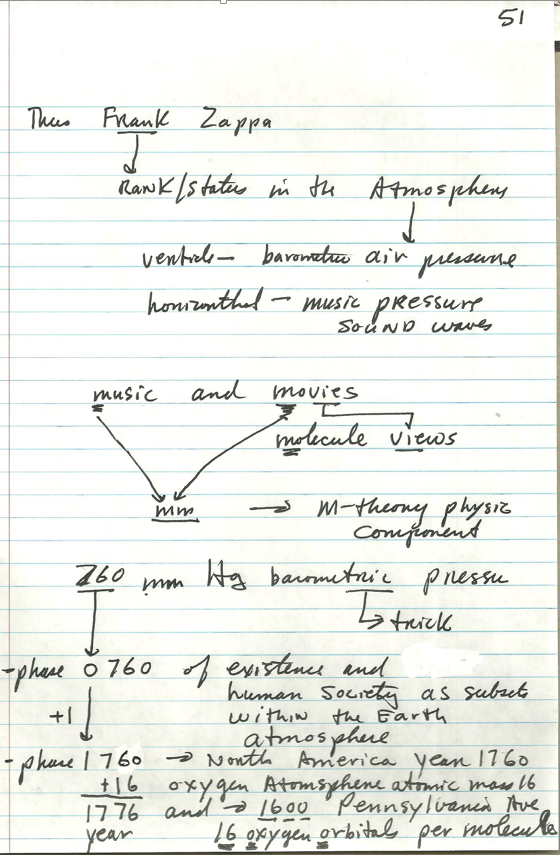 51
Thus Frank Zappa
RANK/Status in the Atmosphere
vertical — barometric air pressure
horizonthal — music pressure
SOUND waves
music and movies
molecule views
mm → M-theory physic
component
760 mm Hg barometric pressu
→ trick
-phase 0760 of existence and
human Society as subsets
+1 within the Earth
atmosphere
-phase 1760 → North America year 1760
+16 oxygen Atomsphere atomic mass 16
1776 and → 1600 Pennsylvania Ave
year 16 oxygen orbitals per molecule